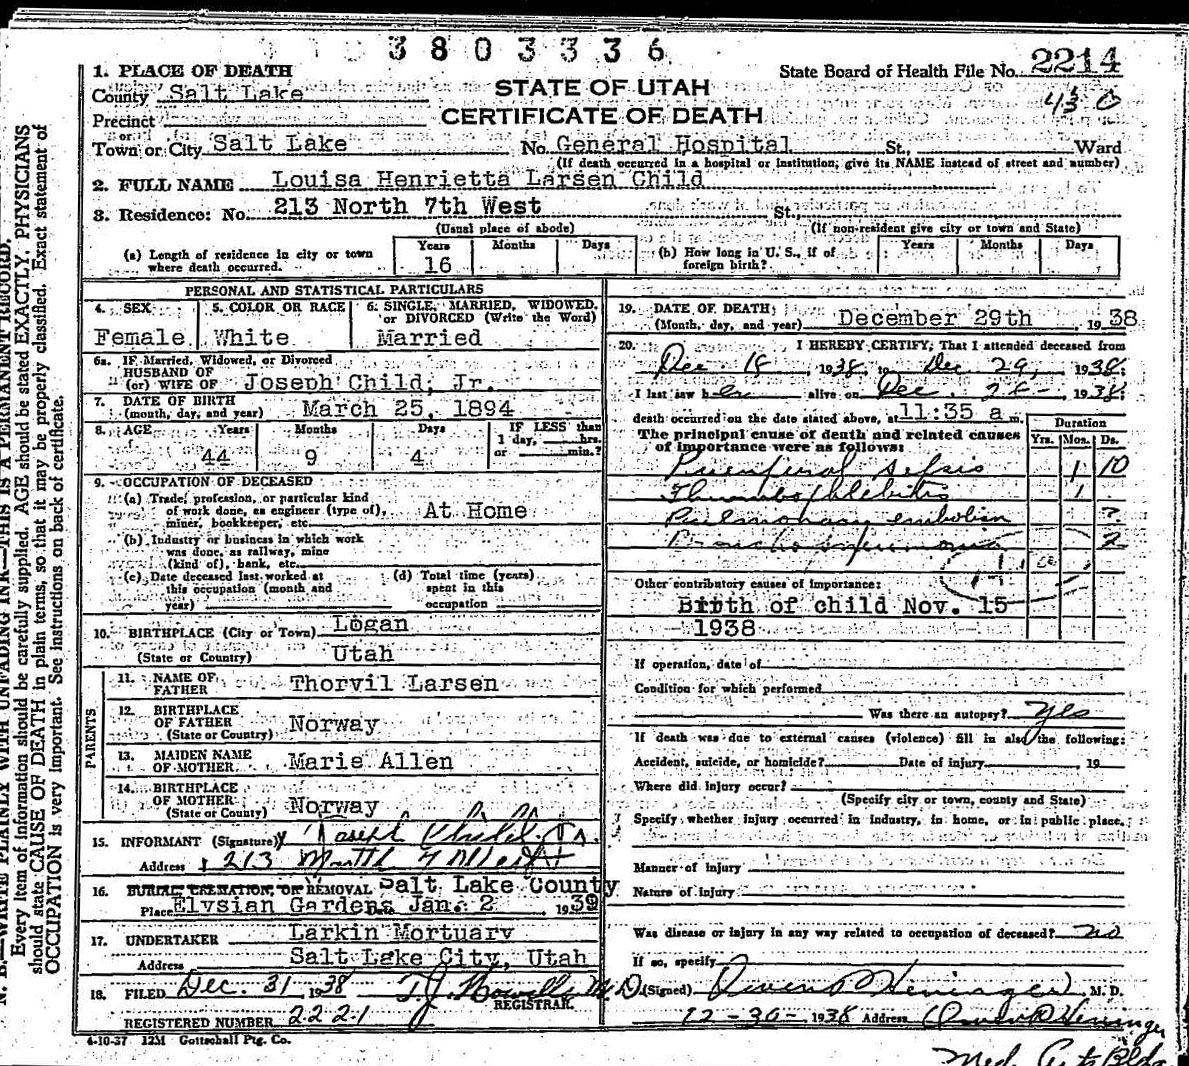 3803336
State Board of Health File No. 2214
430
STATE OF UTAH
CERTIFICATE OF DEATH
1. PLACE OF DEATH
County Salt Lake
Precinct
or
Town or City Salt Lake No. General Hospital St., Ward
(If death occurred in a hospital or institution, give its NAME instead of street and number)
2. FULL NAME Louisa Henrietta Larsen Child
3. Residence: No. 213 North 7th West St.,
(Usual place of abode) (If non-resident give city or town and State)
(a) Length of residence in city or town where death occurred. Years 16 Months Days
(b) How long in U. S., if of foreign birth? Years Months Days
PERSONAL AND STATISTICAL PARTICULARS
4. SEX Female
5. COLOR OR RACE White
6. SINGLE, MARRIED, WIDOWED, or DIVORCED (Write the Word) Married
6a. IF Married, Widowed, or Divorced
HUSBAND OF
(or) WIFE OF Joseph Child, Jr.
7. DATE OF BIRTH
(month, day, and year) March 25, 1894
8. AGE Years 44 Months 9 Days 4
IF LESS than
1 day, hrs.
or min.?
9. OCCUPATION OF DECEASED
(a) Trade, profession, or particular kind
of work done, as engineer (type of), At Home
miner, bookkeeper, etc.
(b) Industry or business in which work
was done, as railway, mine
(kind of), bank, etc.
(c) Date deceased last worked at
this occupation (month and
year)
(d) Total time (years)
spent in this
occupation
10. BIRTHPLACE (City or Town) Logan
(State or Country) Utah
PARENTS
11. NAME OF FATHER Thorvil Larsen
12. BIRTHPLACE OF FATHER Norway
(State or Country)
13. MAIDEN NAME OF MOTHER Marie Allen
14. BIRTHPLACE OF MOTHER Norway
(State or Country)
15. INFORMANT (Signature) Joseph Child Jr.
Address 213 North 7 West
16. BURIAL, CREMATION, OR REMOVAL Salt Lake County
Place Elysian Gardens Date Jan. 2 1939
17. UNDERTAKER Larkin Mortuary
Address Salt Lake City, Utah
18. FILED Dec. 31 1938 T.J. Howells M.D.
REGISTRAR.
REGISTERED NUMBER 2221
4-10-37 12M Gottschall Ptg. Co.
19. DATE OF DEATH:
(Month, day, and year) December 29th, 1938
20. I HEREBY CERTIFY, That I attended deceased from
Dec. 18, 1938, to Dec 29, 1938.
I last saw her alive on Dec. 28 - 1938
death occurred on the date stated above, at 11:35 a m.
The principal cause of death and related causes
of importance were as follows:
Duration
Yrs. Mos. Ds.
Puerperal sepsis 1 10
Thrombophlebitis 1
Pulmonary embolism ?
Broncho pneumonia 2
Other contributory causes of importance:
Birth of child Nov. 15
1938
If operation, date of
Condition for which performed
Was there an autopsy? yes
If death was due to external causes (violence) fill in also the following:
Accident, suicide, or homicide? Date of injury 19
Where did injury occur?
(Specify city or town, county and State)
Specify whether injury occurred in industry, in home, or in public place.
Manner of injury
Nature of injury
Was disease or injury in any way related to occupation of deceased? no
If so, specify
(Signed) Owen P Heninger, M. D.
12-30- 1938 Address Owen P Heninger
Med. Arts Bldg.
N. B.—WRITE PLAINLY WITH UNFADING INK—THIS IS A PERMANENT RECORD.
Every item of information should be carefully supplied. AGE should be stated EXACTLY. PHYSICIANS
should state CAUSE OF DEATH in plain terms, so that it may be properly classified. Exact statement of
OCCUPATION is very important. See instructions on back of certificate.